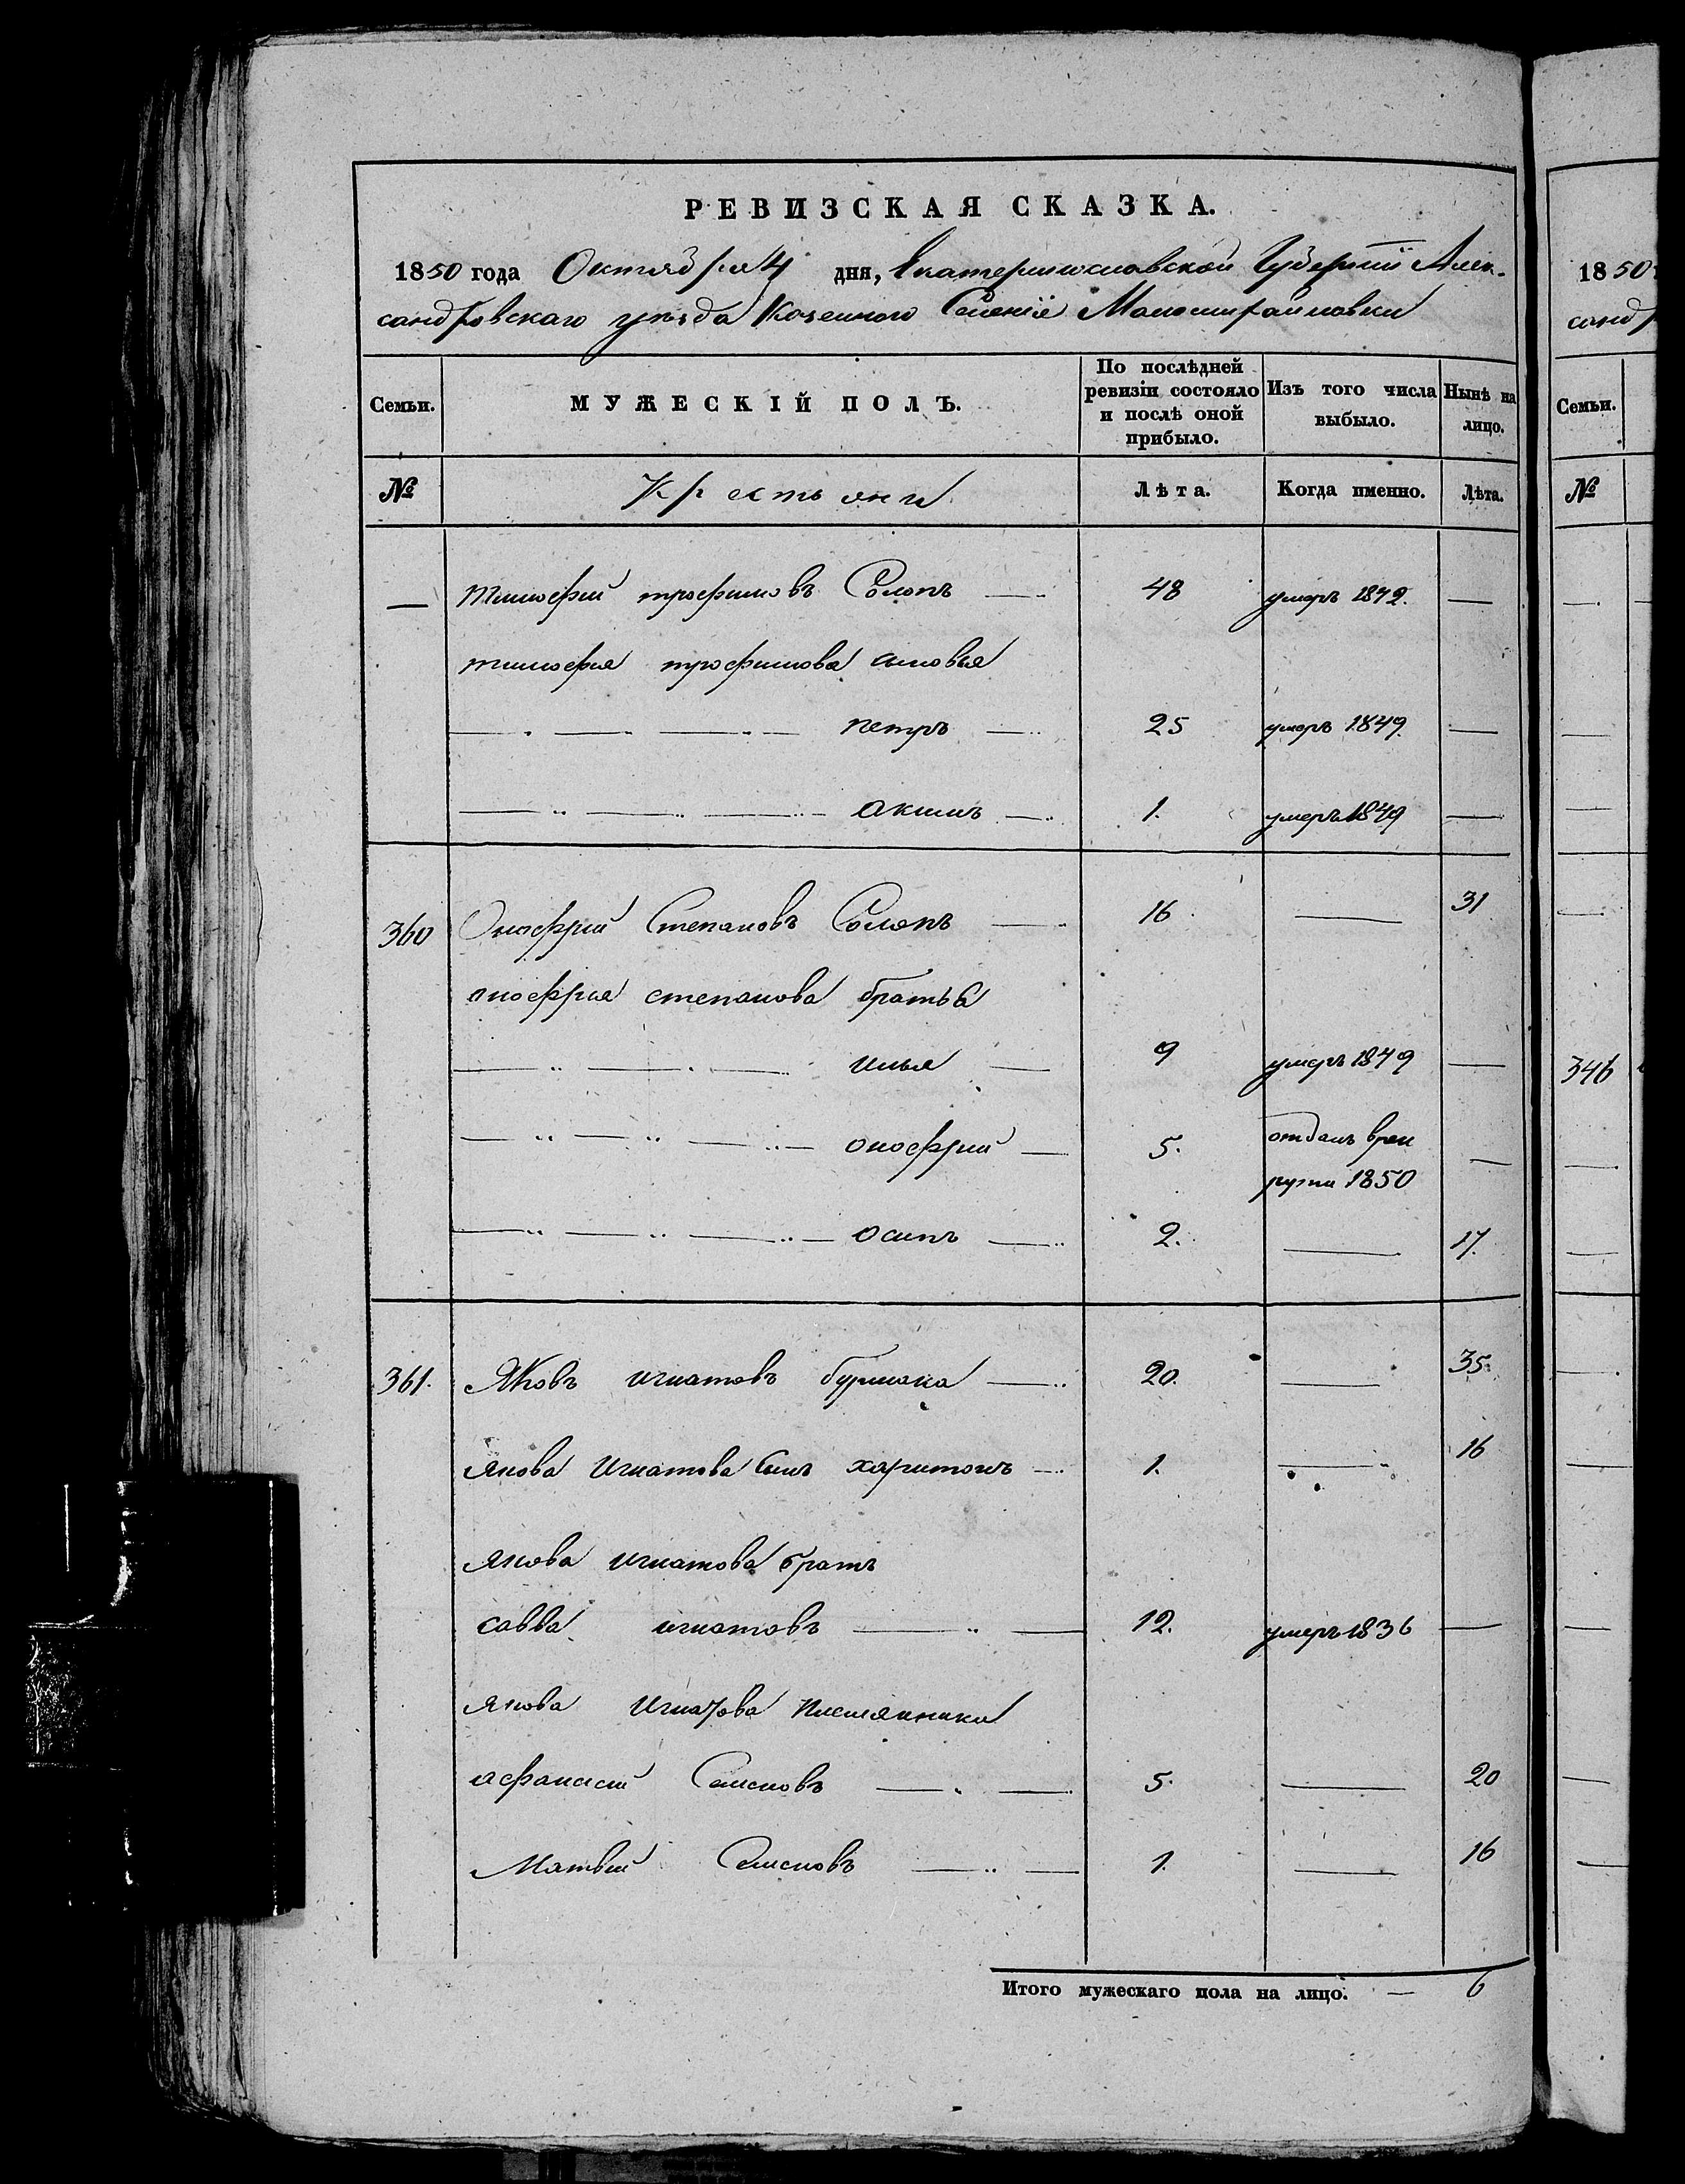 РЕВИЗСКАЯ СКАЗКА.
1850 года Октября 4 дня, Екатеринославской Губернiи Алек-
сандровскаго уезда Казенного Селенiя Маломихайловки
Семьи.
МУЖЕСКІЙ ПОЛЪ.
По послѣдней ревизіи состояло и послѣ оной прибыло.
Изъ того числа выбыло.
Нынѣ на лицо.
№ Крестьяни Лѣта. Когда именно. Лѣта.
— тимофей трофимовъ Солопъ — 48 умеръ 1842. —
тимофея трофимова сыновья
— — — петръ — 25 умеръ 1849. —
— — — акимъ — 1. умеръ 1849 —
360 Онофрий Степановъ Солопъ — 16 — 31
онофрия степанова братья
— — — илья — 9 умеръ 1849 —
— — — онофрий — 5. отданъ врек
руты 1850 —
— — — осипъ — 2. — 17.
361. Яковъ игнатовъ бурлака — 20. — 35.
якова игнатова сынъ харитонъ — 1. — 16
якова игнатова братъ
савва игнатовъ — — 12. умеръ 1836 —
якова игнатова племянники
афанасий Семеновъ — — 5. — 20
Матвей Семеновъ — — 1. — 16
Итого мужескаго пола на лицо. — 6
1850
санд
Семьи.
№
346